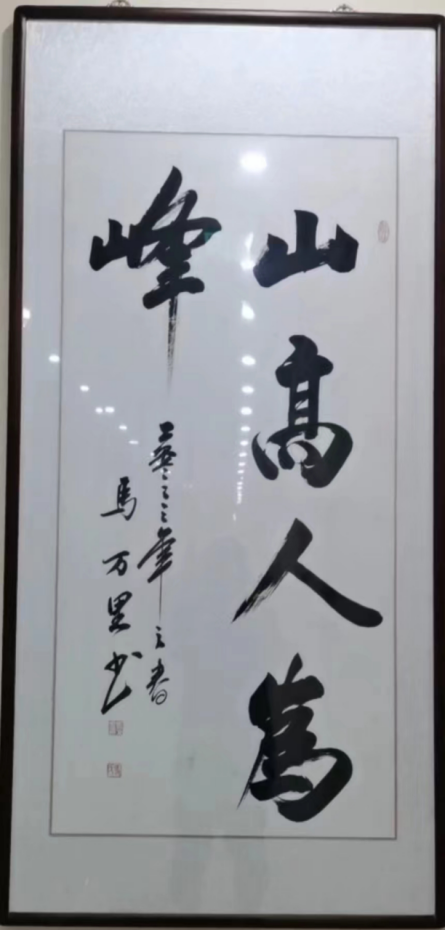 山高人為
峰
二零二三年之春
馬万里书